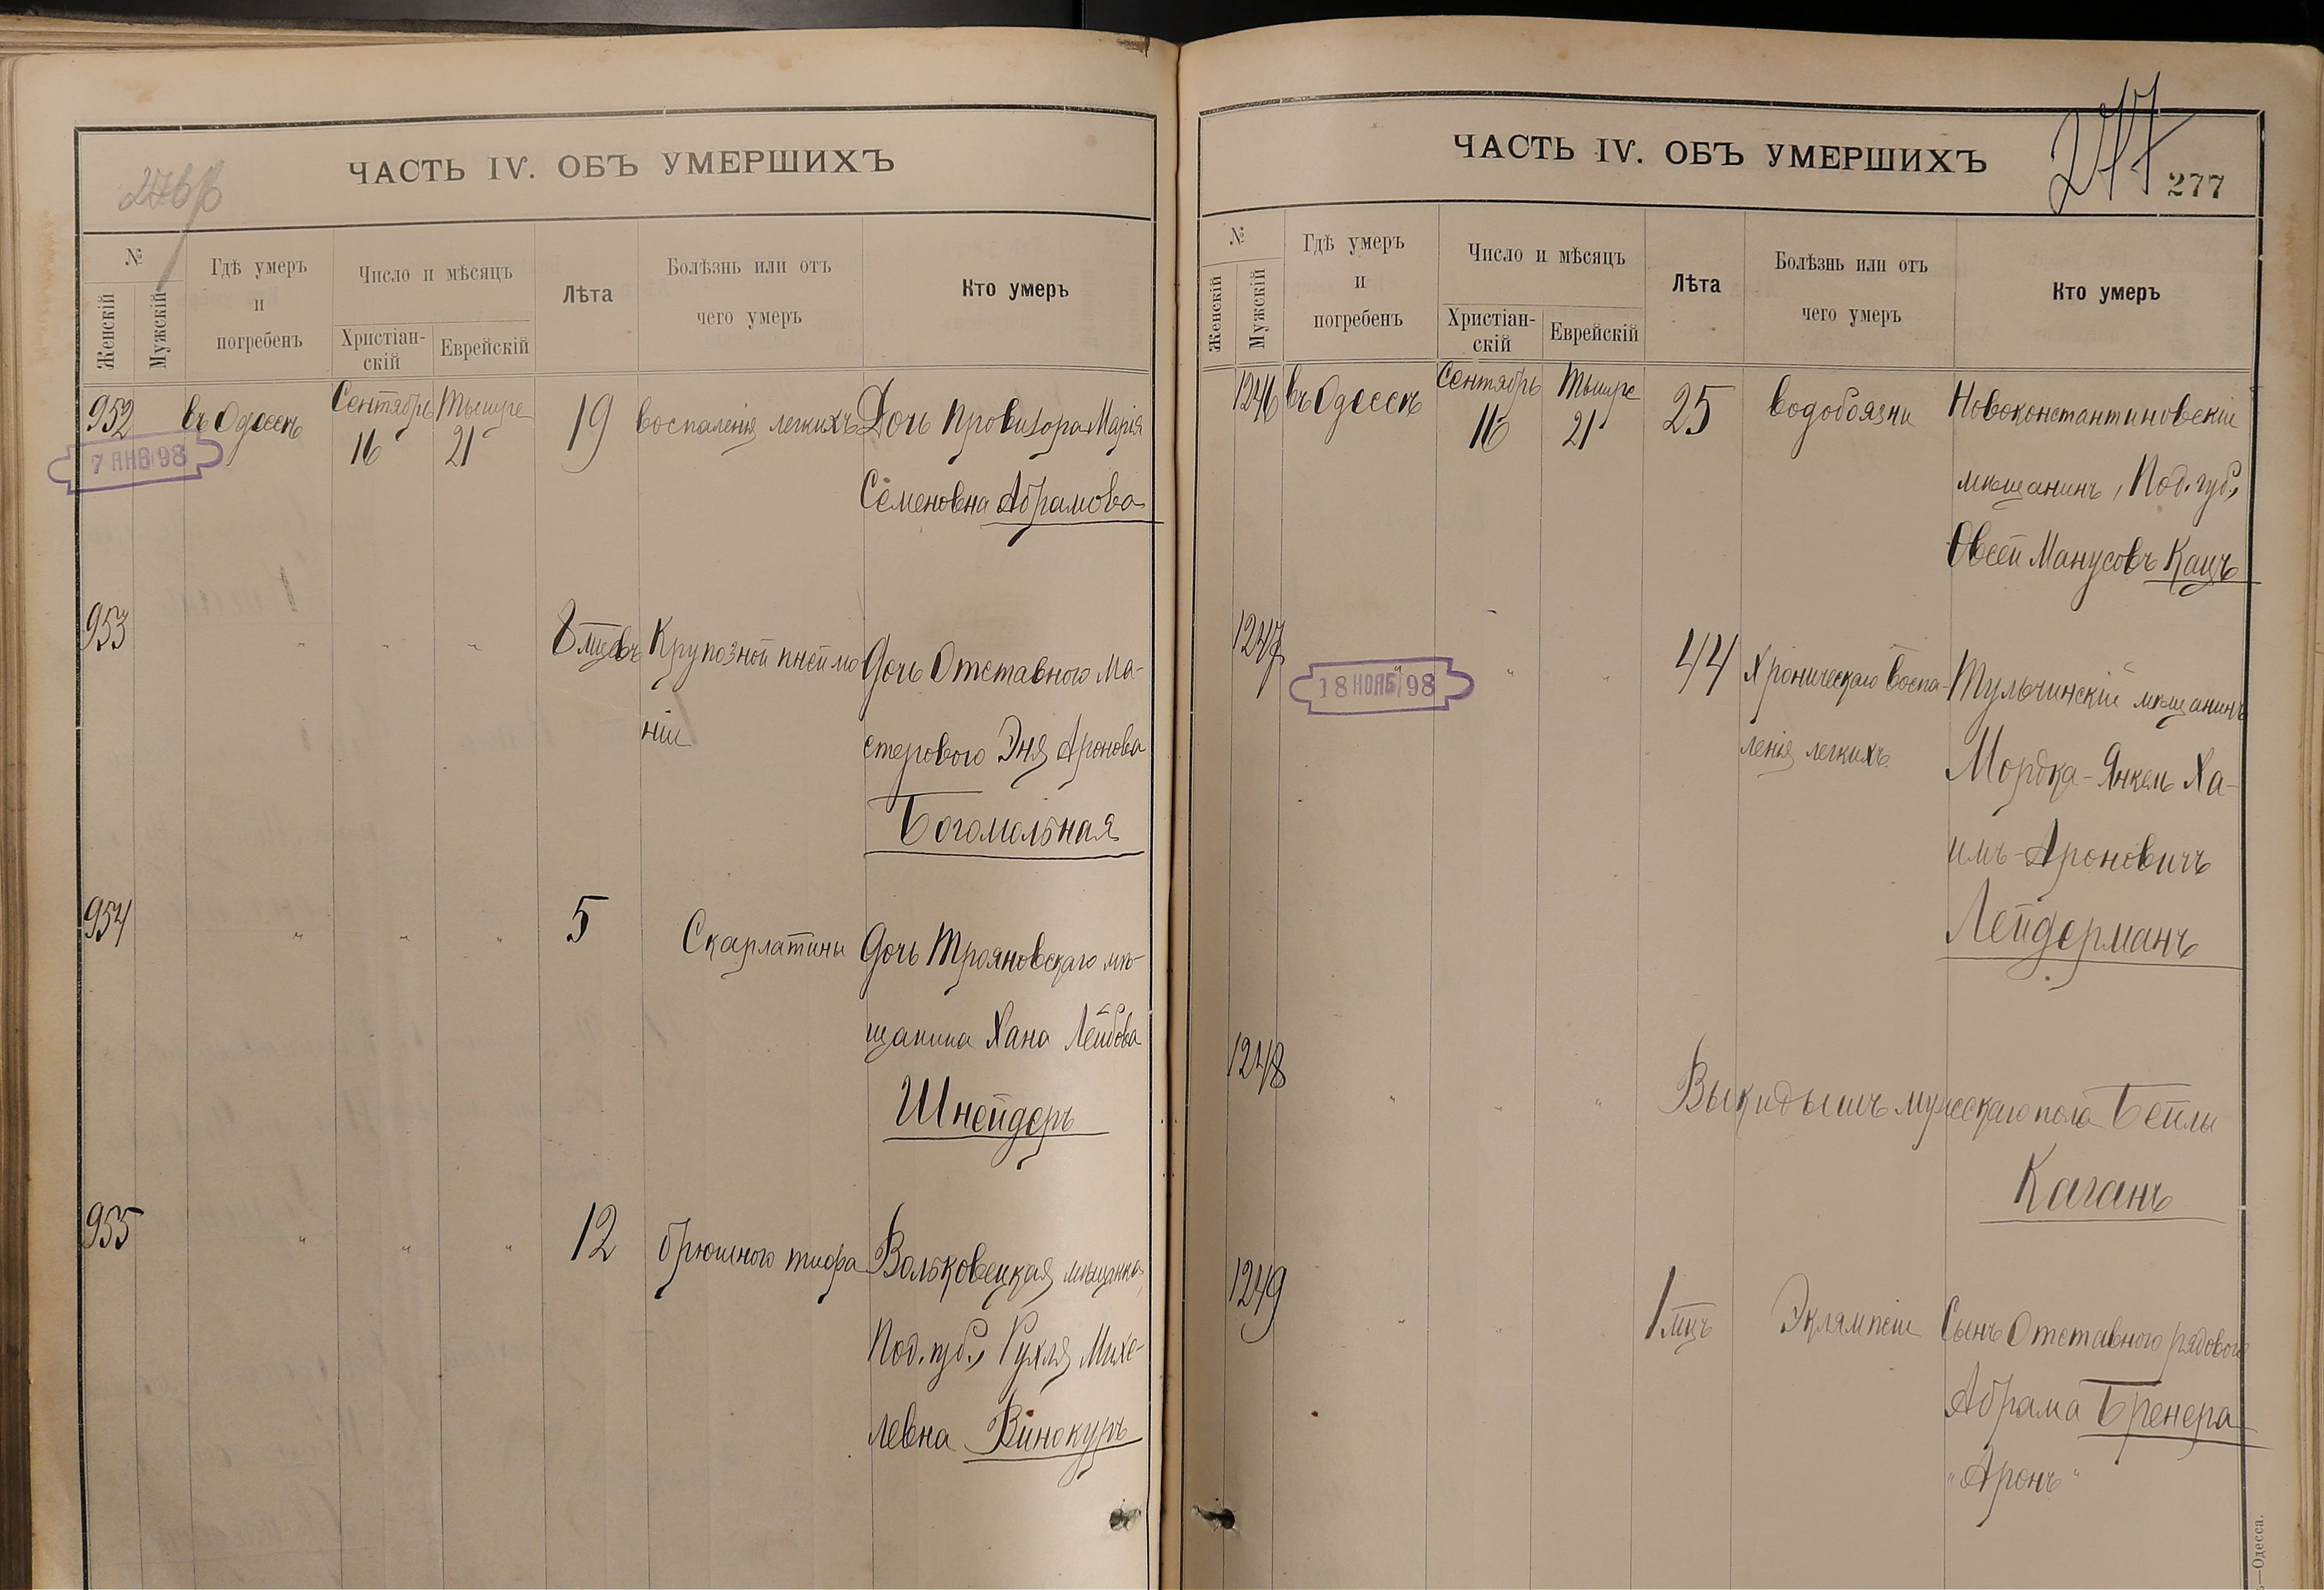 276 об
ЧАСТЬ IV. ОБЪ УМЕРШИХЪ
№
Женскій
Мужскій
Гдѣ умеръ
и
погребенъ
Число и мѣсяцъ
Христіан-
скій
Еврейскій
Лѣта
Болѣзнь или отъ
чего умеръ
Кто умеръ
952 въ Одессѣ Сентябрь 16 Тышре 21 19 воспаленія легкихъ Дочь провизора Марія
Семеновна Абрамова
7 ЯНВ 98
953 " " " 8 мцевъ Крупозной пнеймо Дочь Отставного ма-
ніи
стерового Эня Аронова
Богомольная
954 " " " 5 Скарлатины Дочь Трояновскаго мѣ-
щанина Хана Лейбова
Шнейдеръ
955 " " " 12 брюшного тифа Вольковецкая мѣщанка,
Под. губ., Рухля Михе-
левна Винокуръ
ЧАСТЬ IV. ОБЪ УМЕРШИХЪ
277
277
№
Женскій
Мужскій
Гдѣ умеръ
и
погребенъ
Число и мѣсяцъ
Христіан-
скій
Еврейскій
Лѣта
Болѣзнь или отъ
чего умеръ
Кто умеръ
1246 въ Одессѣ Сентябрь 16 Тышре 21 25 водобоязни Новоконстантиновскій
мѣщанинъ, Под. губ.,
Овсей Манусовъ Кацъ
1247 " " " 44 Хроническаго воспа- Тульчинскій мѣщанинъ
18 НОЯБ 98
ленія легкихъ
Мордка-Янкель Ха-
имъ-Ароновичъ
Лейдерманъ
1248 " " " Выкидышъ мужескаго пола Бейлы
Каганъ
1249 " " " 1 мцъ Эклямпсіи Сынъ Отставного рядового
Абрама Бренера
"Аронъ"
—Одесса.